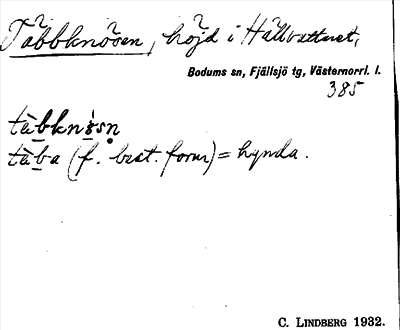 Tåbbknösen, höjd i Hällvattnet,
Bodums sn, Fjällsjö tg, Västernorrl. l.
385
tàbknø̀sn
tàba (f. best. form) = hynda.
C. LINDBERG 1932.